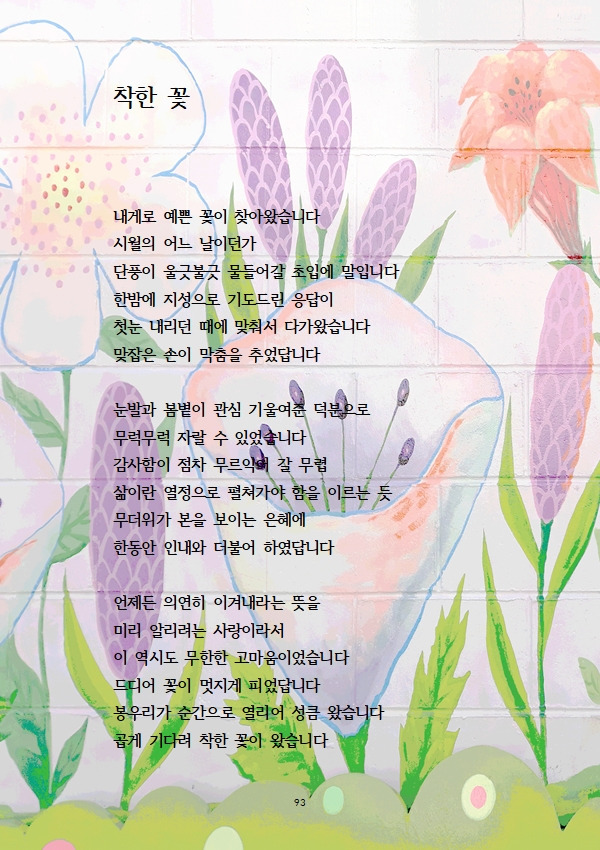 착한 꽃
내게로 예쁜 꽃이 찾아왔습니다
시월의 어느 날이던가
단풍이 울긋불긋 물들어갈 초입에 말입니다
한밤에 지성으로 기도드린 응답이
첫눈 내리던 때에 맞춰서 다가왔습니다
맞잡은 손이 막춤을 추었답니다
눈발과 봄볕이 관심 기울여준 덕분으로
무럭무럭 자랄 수 있었습니다
감사함이 점차 무르익어 갈 무렵
삶이란 열정으로 펼쳐가야 함을 이르는 듯
무더위가 본을 보이는 은혜에
한동안 인내와 더불어 하였답니다
언제든 의연히 이겨내라는 뜻을
미리 알리려는 사랑이라서
이 역시도 무한한 고마움이었습니다
드디어 꽃이 멋지게 피었답니다
봉우리가 순간으로 열리어 성큼 왔습니다
곱게 기다려 착한 꽃이 왔습니다
93